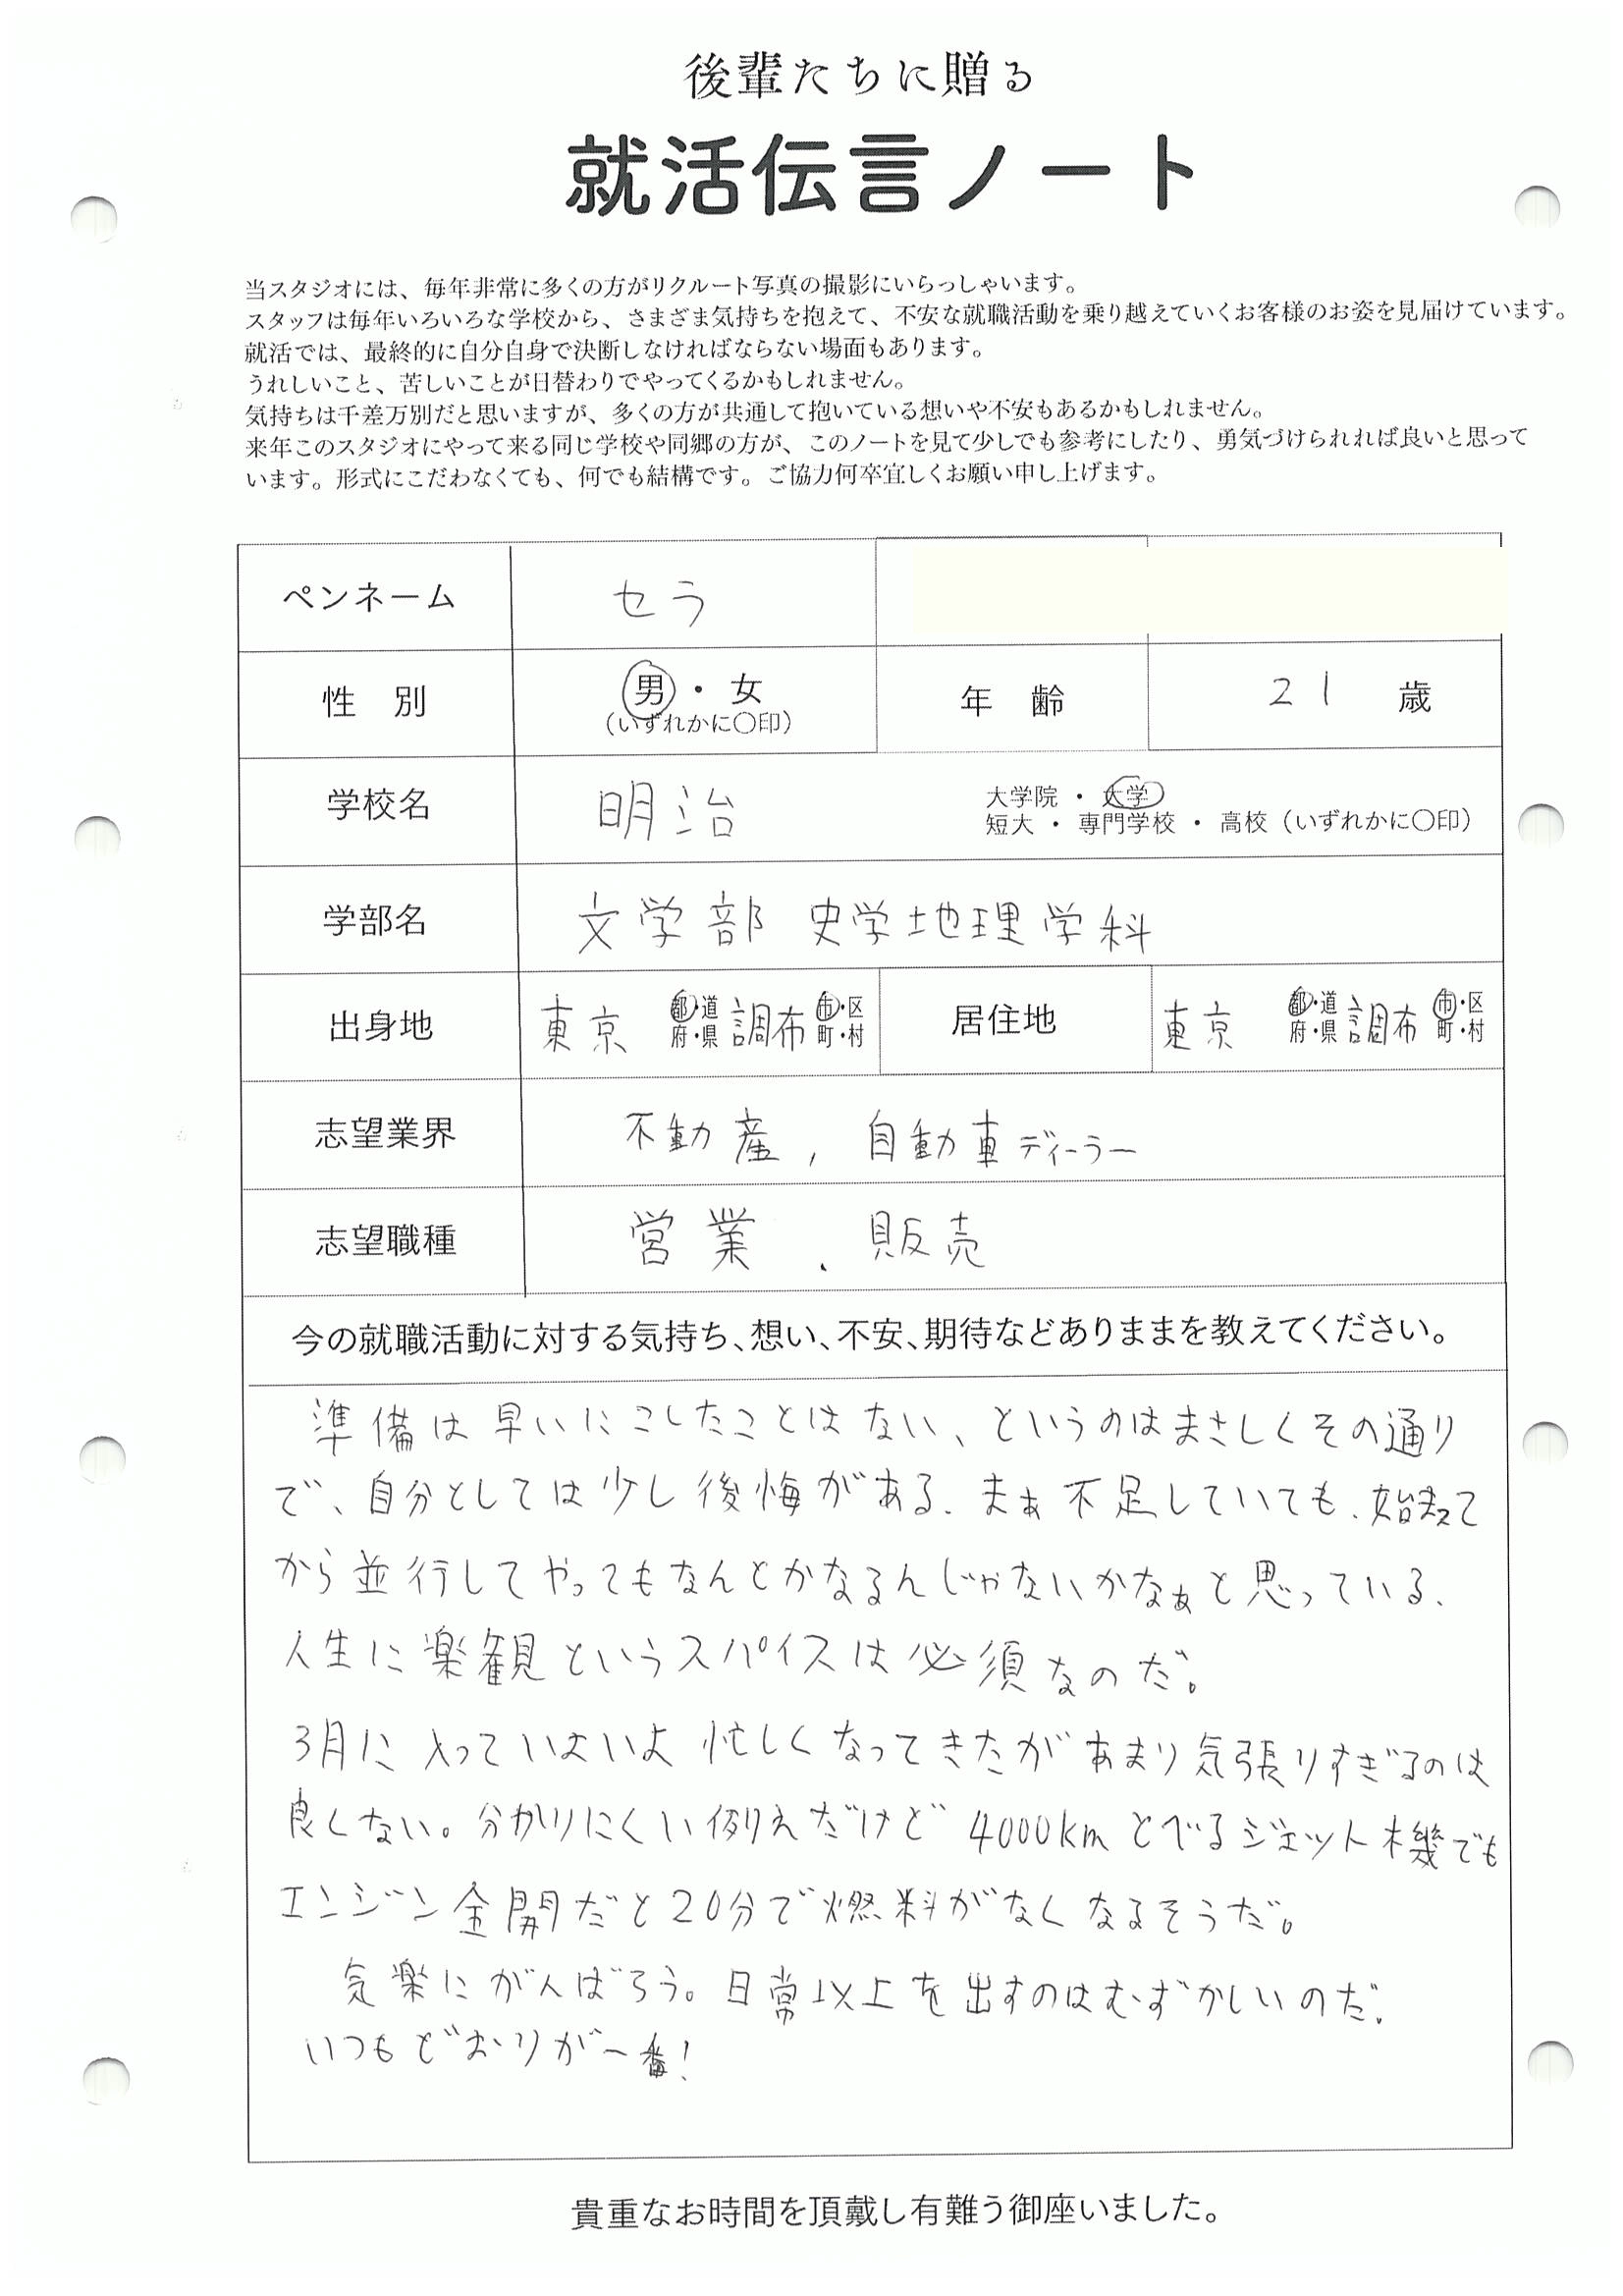 後輩たちに贈る
就活伝言ノート
当スタジオには、毎年非常に多くの方がリクルート写真の撮影にいらっしゃいます。
スタッフは毎年いろいろな学校から、さまざま気持ちを抱えて、不安な就職活動を乗り越えていくお客様のお姿を見届けています。
就活では、最終的に自分自身で決断しなければならない場面もあります。
うれしいこと、苦しいことが日替わりでやってくるかもしれません。
気持ちは千差万別だと思いますが、多くの方が共通して抱いている想いや不安もあるかもしれません。
来年このスタジオにやって来る同じ学校や同郷の方が、このノートを見て少しでも参考にしたり、勇気づけられれば良いと思って
います。形式にこだわなくても、何でも結構です。ご協力何卒宜しくお願い申し上げます。
ペンネーム セラ
性 別 男・女 年 齢 21 歳
(いずれかに〇印)
学校名 明治 大学院・大学
短大・専門学校・高校(いずれかに〇印)
学部名 文学部 史学地理学科
出身地 東京 都・道 府・県 調布 市・区 町・村 居住地 東京 都・道 府・県 調布 市・区 町・村
志望業界 不動産, 自動車ディーラー
志望職種 営業、販売
今の就職活動に対する気持ち、想い、不安、期待などありままを教えてください。
準備は早いにこしたことはない、というのはまさしくその通り
で、自分としては少し後悔がある。まぁ不足していても、始えて
から並行してやってもなんとかなるんじゃないかなぁと思っている。
人生に楽観というスパイスは必須なのだ。
3月に入っていよいよ忙しくなってきたがあまり気張りすぎるのは
良くない。分かりにくい例えだけど4000kmとべるジェット機でも
エンジン全開だと20分で燃料がなくなるそうだ。
気楽にがんばろう。日常以上を出すのはむずかしいのだ。
いつもどおりが一番!
貴重なお時間を頂戴し有難う御座いました。